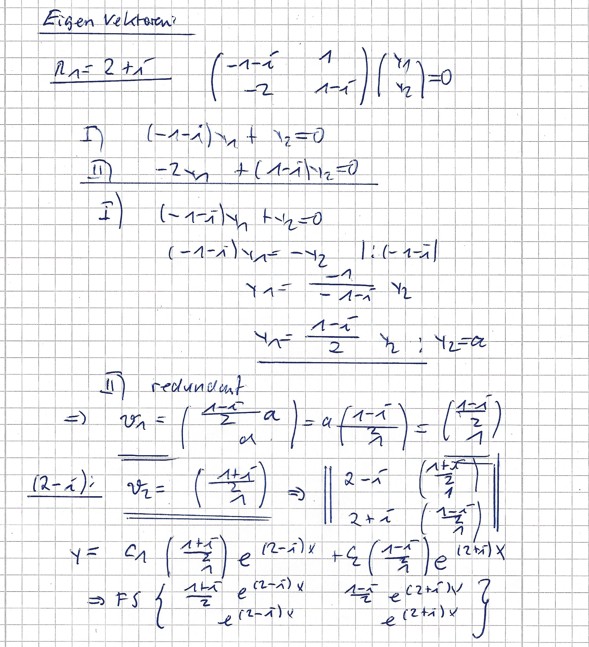 Eigenvektoren:
λ₁ = 2+i   ( -1-i   1 ; -2   1-i ) ( y₁ ; y₂ ) = 0
I) (-1-i)y₁ + y₂ = 0
II) -2y₁ + (1-i)y₂ = 0
I) (-1-i)y₁ + y₂ = 0
(-1-i)y₁ = -y₂ |:(-1-i)
y₁ = -1/(-1-i) y₂
y₁ = (1-i)/2 y₂ ; y₂ = a
II) redundant
⇒ v₁ = ( (1-i)/2 a ; a ) = a ( (1-i)/2 ; 1 ) = ( (1-i)/2 ; 1 )
(2-i): v₂ = ( (1+i)/2 ; 1 ) ⇒ || 2-i ( (1+i)/2 ; 1 )
2+i ( (1-i)/2 ; 1 ) ||
y = c₁ ( (1+i)/2 ; 1 ) e^(2-i)x + c₂ ( (1-i)/2 ; 1 ) e^(2+i)x
⇒ FS { (1+i)/2 e^(2-i)x   (1-i)/2 e^(2+i)x
e^(2-i)x   e^(2+i)x }